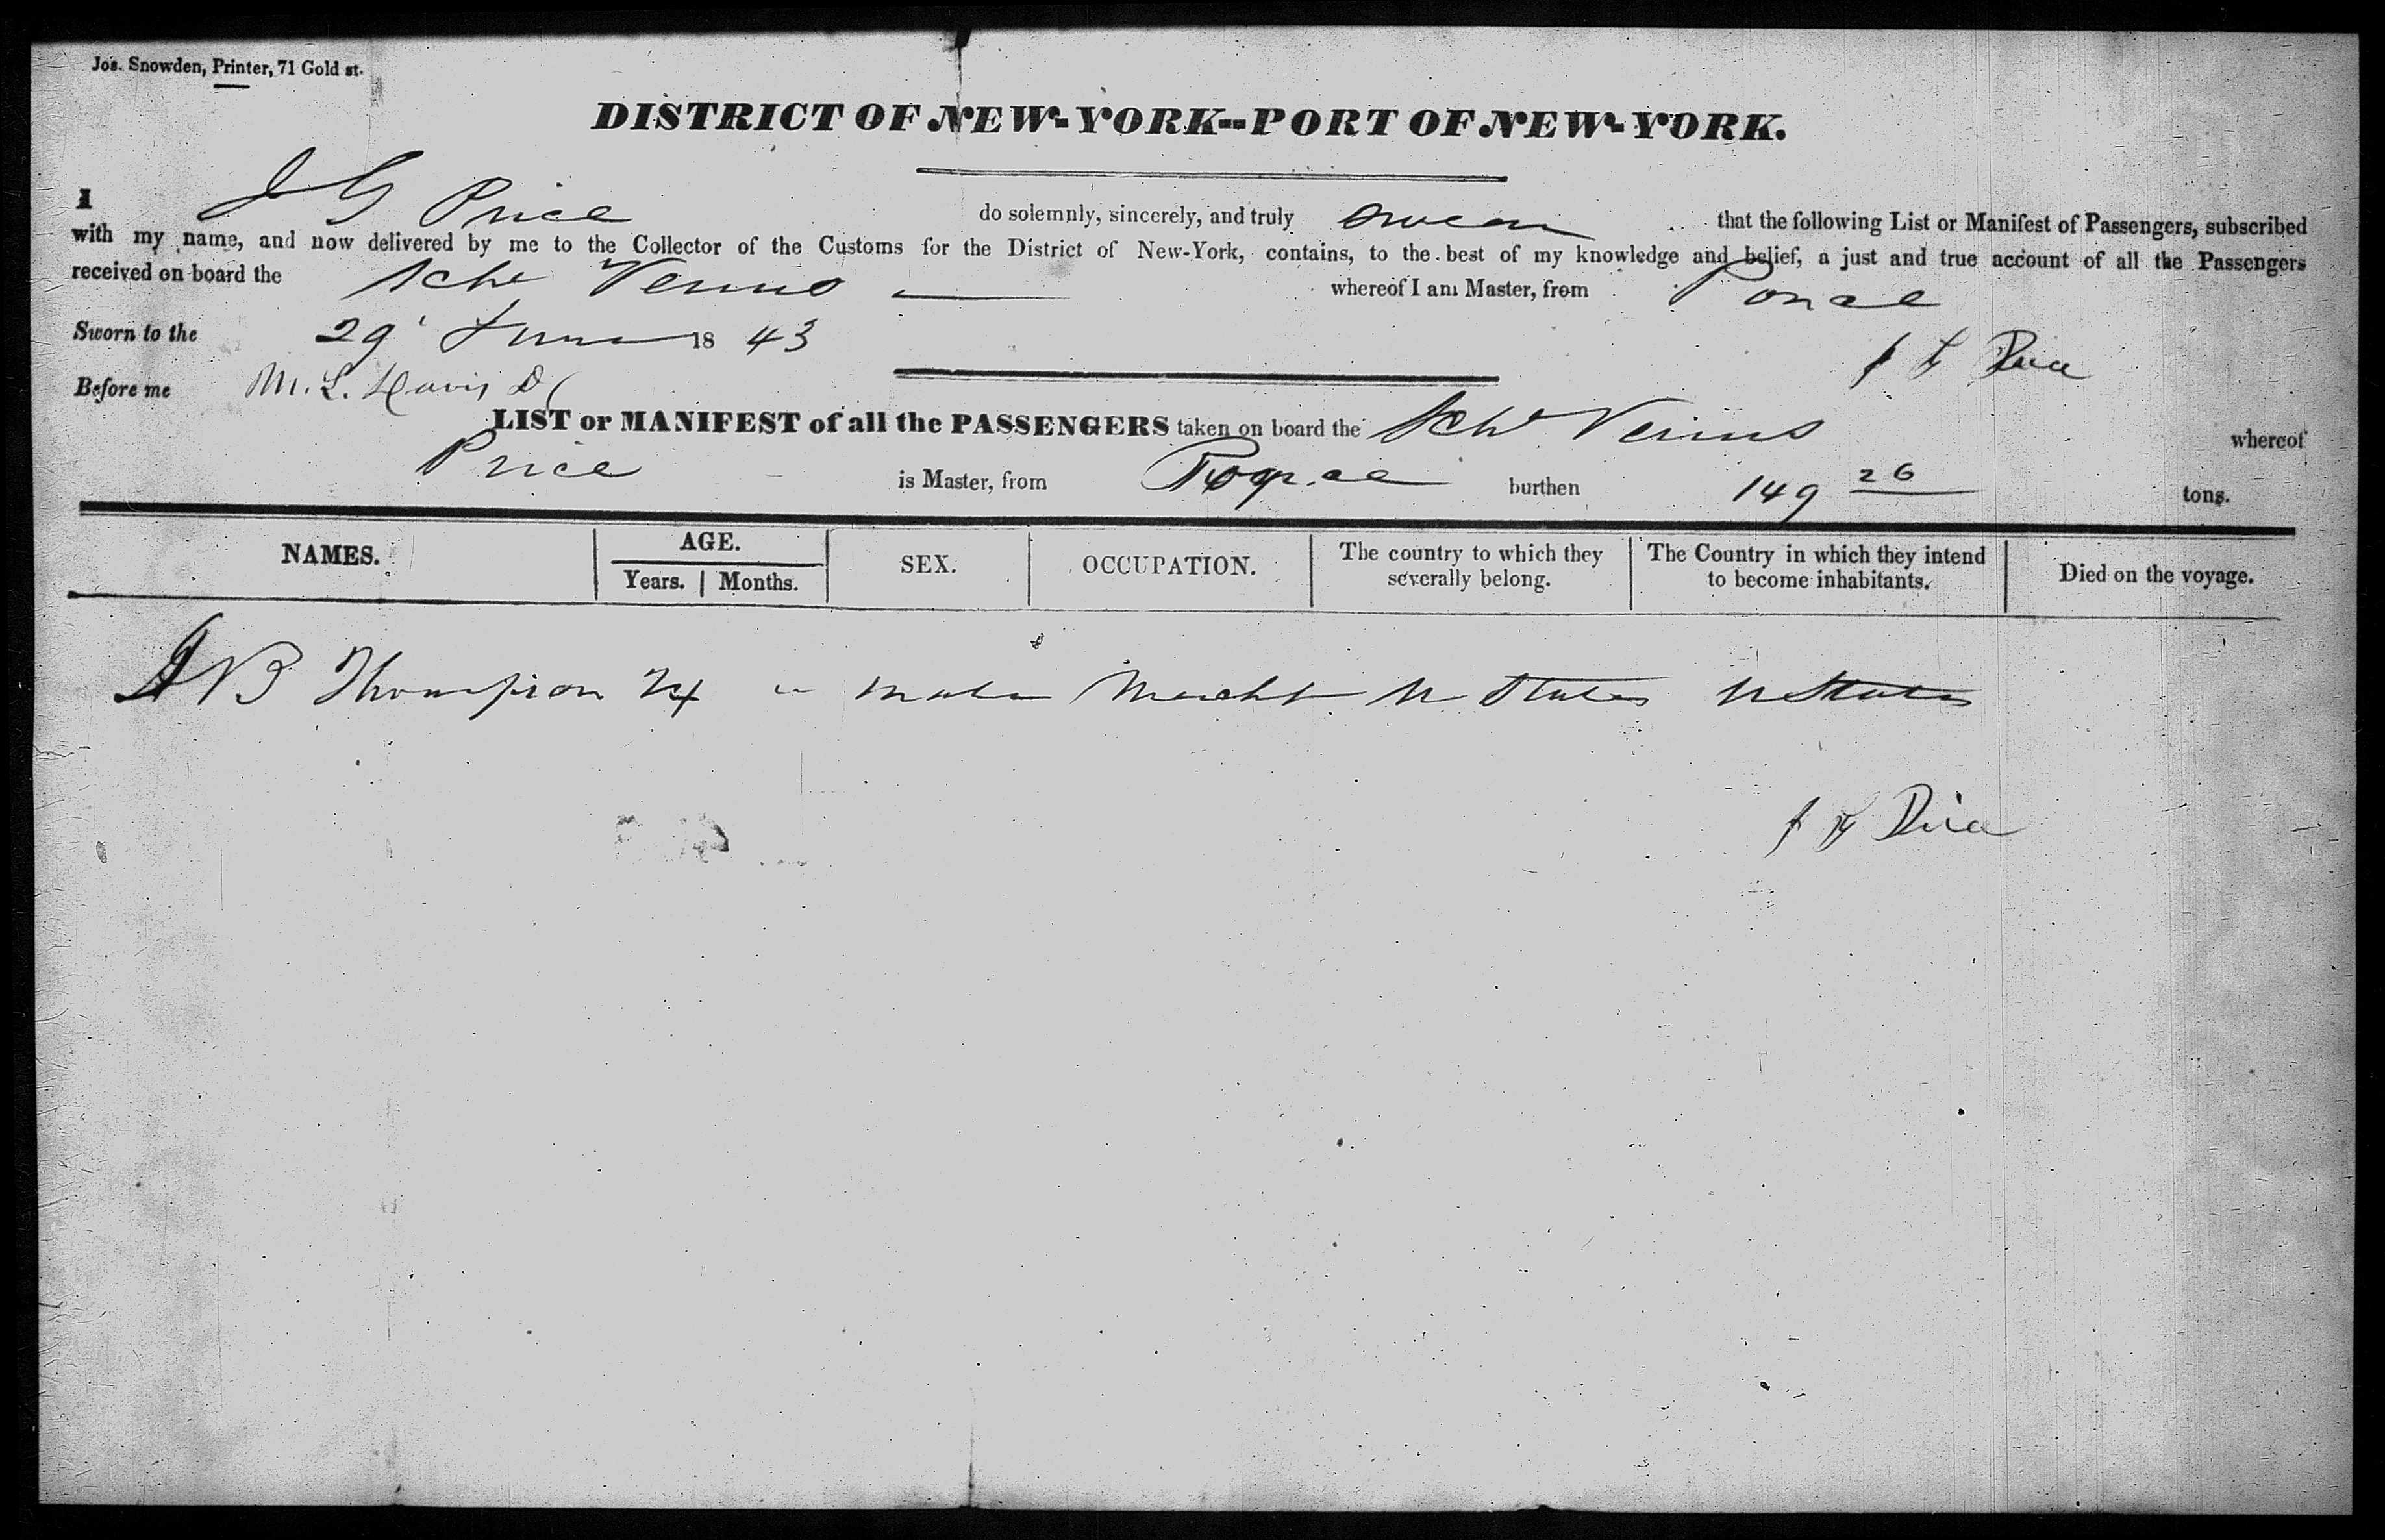 Jos. Snowden, Printer, 71 Gold st.
DISTRICT OF NEW-YORK--PORT OF NEW-YORK.
I J G Price do solemnly, sincerely, and truly swear that the following List or Manifest of Passengers, subscribed
with my name, and now delivered by me to the Collector of the Customs for the District of New-York, contains, to the best of my knowledge and belief, a just and true account of all the Passengers
received on board the Schr Venus whereof I am Master, from Ponce
Sworn to the 29 June 1843
J G Price
Before me M. L. Davis D C
LIST or MANIFEST of all the PASSENGERS taken on board the Schr Venus whereof
Price is Master, from Ponce burthen 149 26 tons.
NAMES. AGE. Years. Months. SEX. OCCUPATION. The country to which they severally belong. The Country in which they intend to become inhabitants. Died on the voyage.
B Thompson 24 " male Mercht U States U States
J G Price